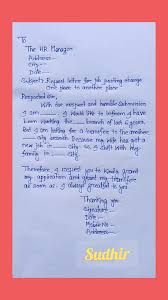 To
The HR Manager
Address---
City---
Date---
Subject:- Request letter for job posting change
One place to another place
Respected Sir,
With due respect and humble Submission
I am ____, I would like to inform u have
been working the ____ branch of last 5 years.
But I am looking for a transfer to the another
____ city branch Because my wife has got a
new job in ____ city. So, I shift with my
family to ____ city.
Therefore I request you to kindly grant
my application and grant my transfer
as soon as. I always grateful to you
Thanking you
Signature---
Date---
Mobile No---
Address---
Sudhir